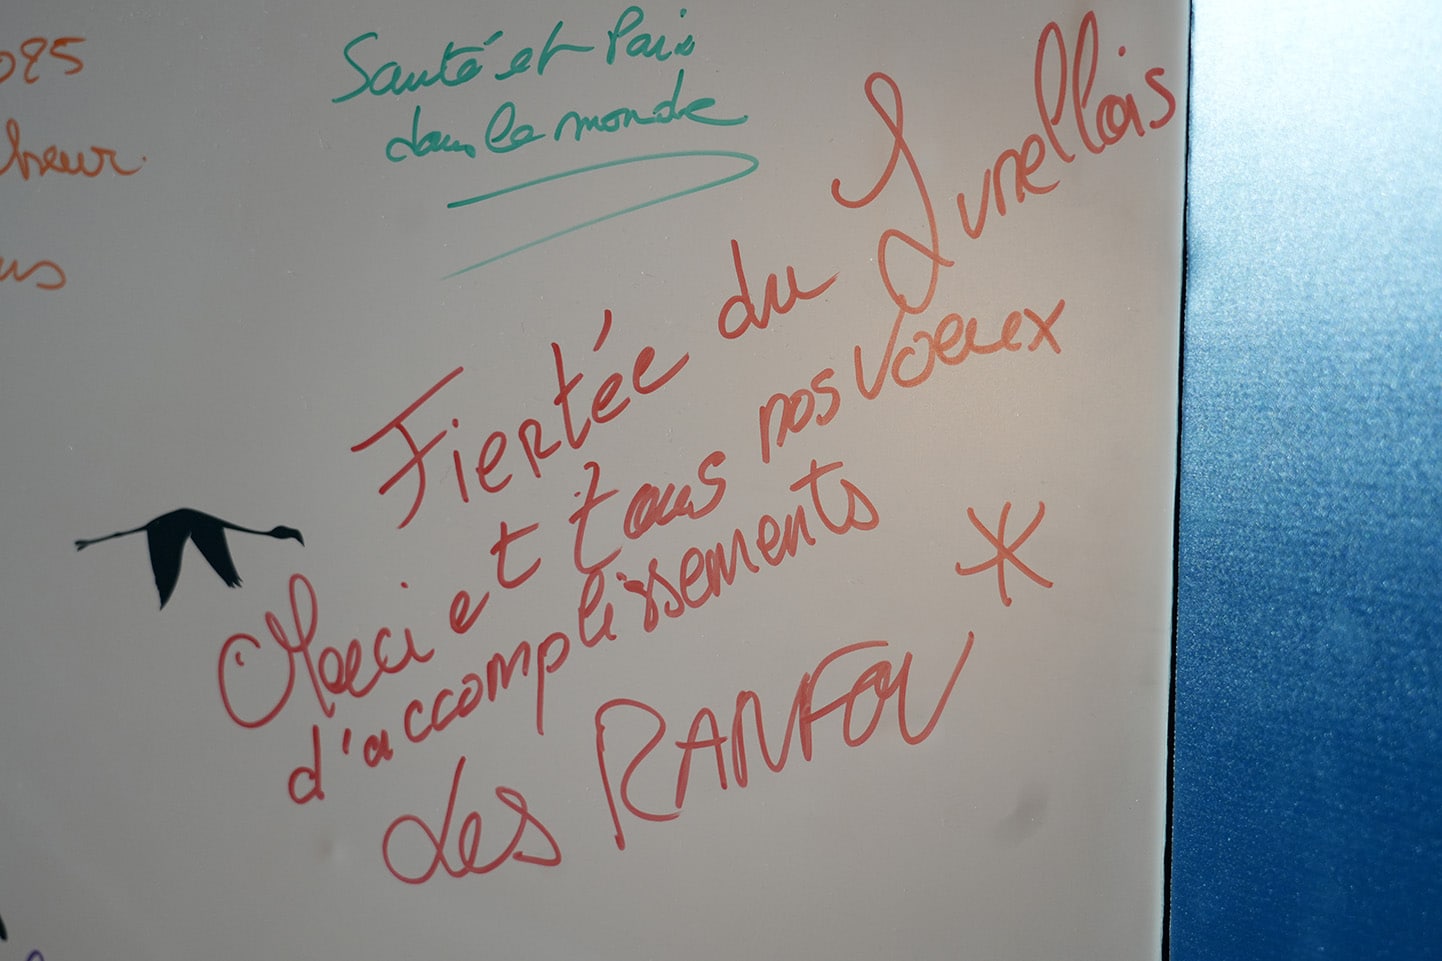 Santé et Paix
dans le monde
Fiertée du Lunellois
Merci et tous nos voeux
d'accomplissements
Les RANFOU